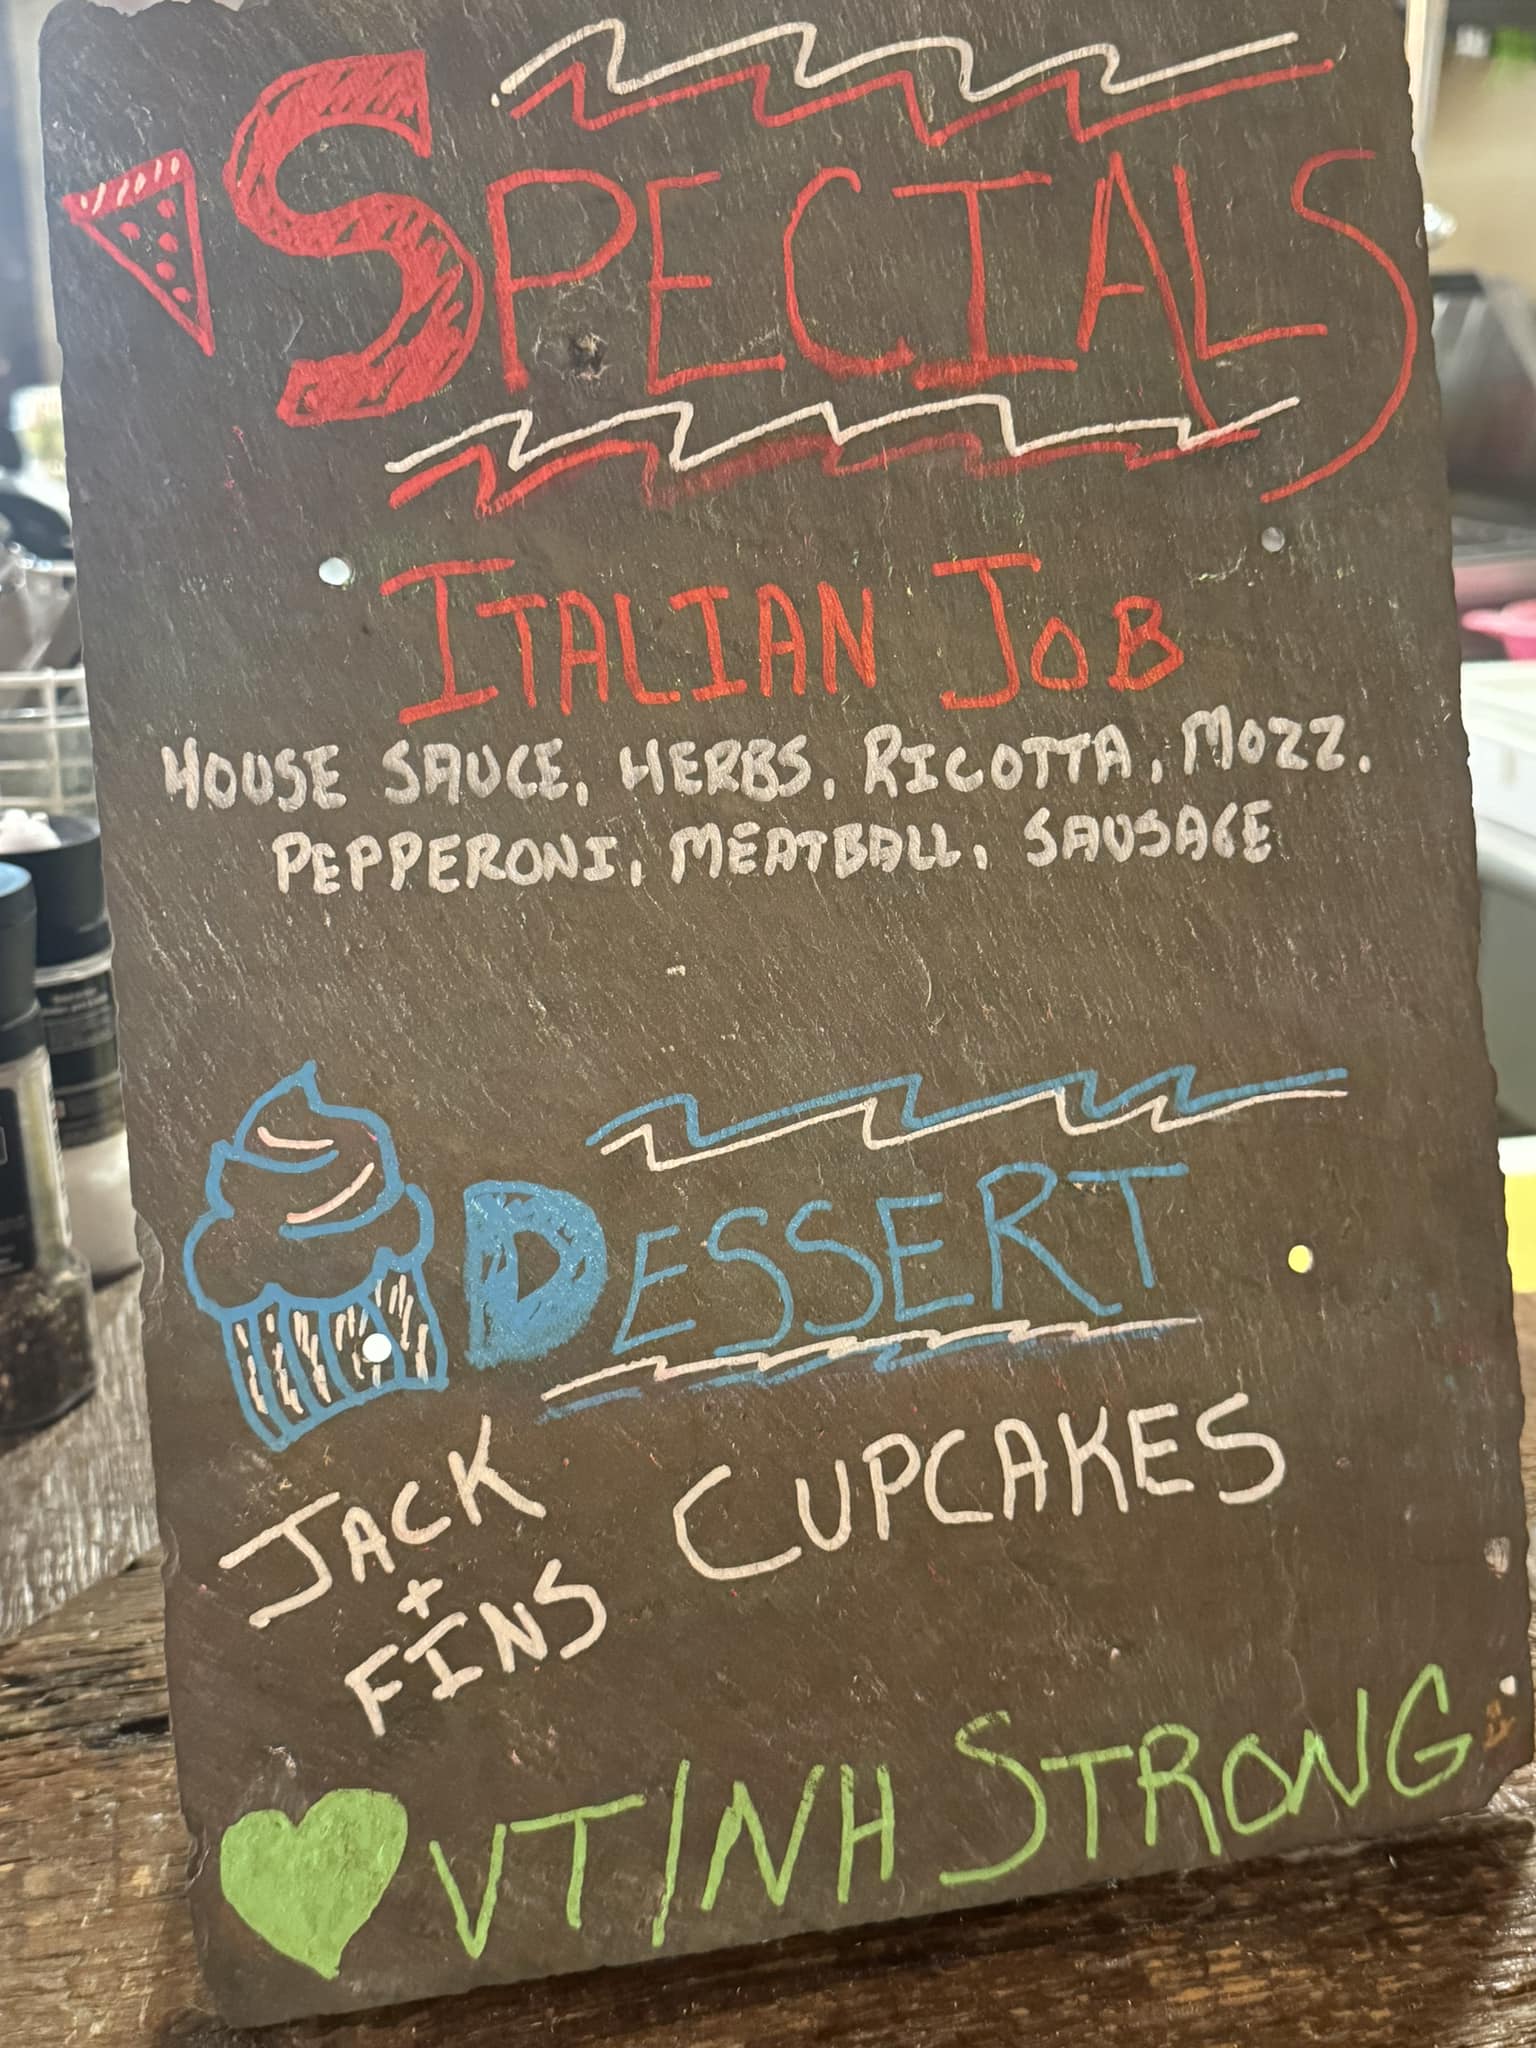 SPECIALS
ITALIAN JOB
HOUSE SAUCE, HERBS, RICOTTA, MOZZ,
PEPPERONI, MEATBALL, SAUSAGE
DESSERT
JACK + FINS CUPCAKES
VT/NH STRONG